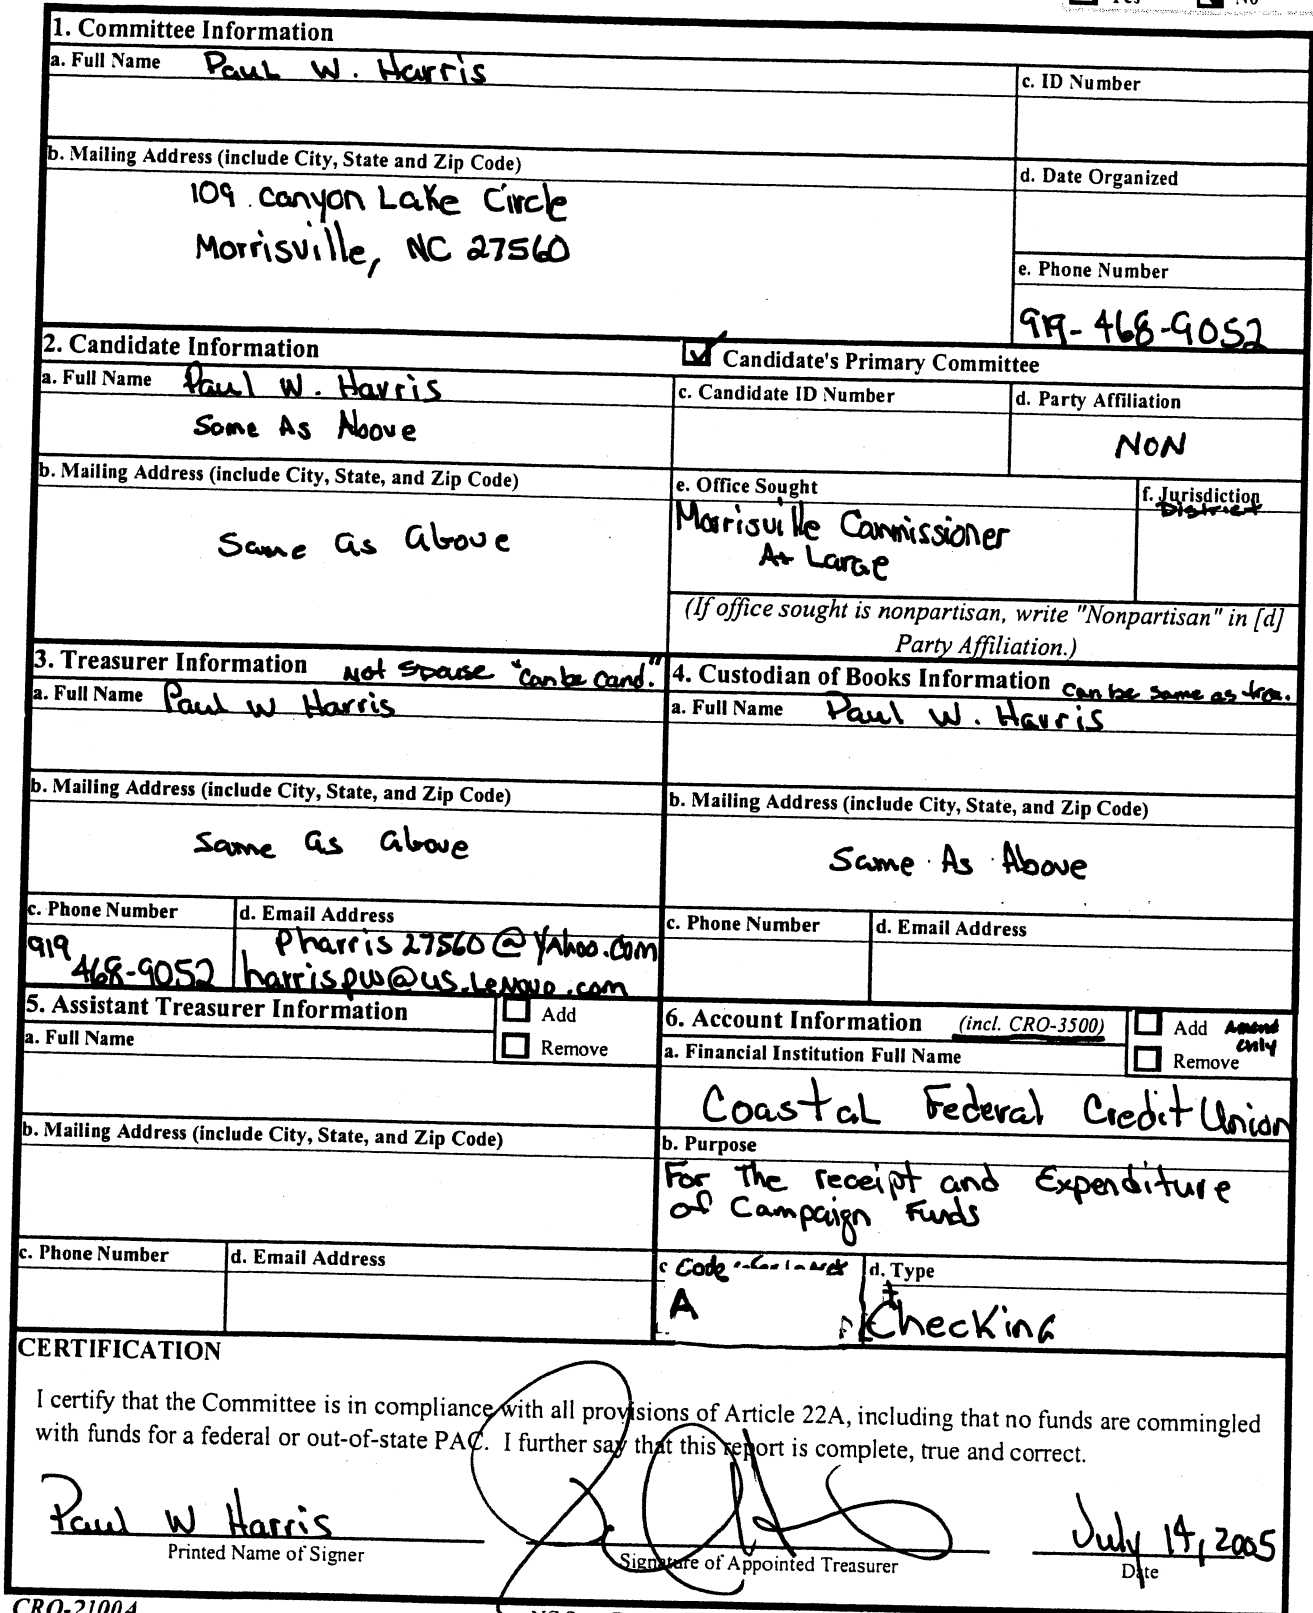 Yes No
1. Committee Information
a. Full Name Paul W. Harris
c. ID Number
b. Mailing Address (include City, State and Zip Code)
109 Canyon Lake Circle
Morrisville, NC 27560
d. Date Organized
e. Phone Number
919-468-9052
2. Candidate Information
Candidate's Primary Committee
a. Full Name Paul W. Harris
Same As Above
c. Candidate ID Number
d. Party Affiliation
NON
b. Mailing Address (include City, State, and Zip Code)
Same as above
e. Office Sought
Morrisville Commissioner
At Large
f. Jurisdiction
District
(If office sought is nonpartisan, write "Nonpartisan" in [d]
Party Affiliation.)
3. Treasurer Information Not Spouse "can be cand."
a. Full Name Paul W Harris
b. Mailing Address (include City, State, and Zip Code)
Same as above
c. Phone Number
919
468-9052
d. Email Address
Pharris27560@Yahoo.com
harrispw@us.Lenovo.com
4. Custodian of Books Information can be same as trea.
a. Full Name Paul W. Harris
b. Mailing Address (include City, State, and Zip Code)
Same As Above
c. Phone Number
d. Email Address
5. Assistant Treasurer Information
Add
Remove
a. Full Name
b. Mailing Address (include City, State, and Zip Code)
c. Phone Number
d. Email Address
6. Account Information (incl. CRO-3500)
Add Amend
only
Remove
a. Financial Institution Full Name
Coastal Federal Credit Union
b. Purpose
For The receipt and Expenditure
of Campaign Funds
c Code
A
d. Type
Checking
CERTIFICATION
I certify that the Committee is in compliance with all provisions of Article 22A, including that no funds are commingled
with funds for a federal or out-of-state PAC. I further say that this report is complete, true and correct.
Paul W Harris
July 14, 2005
Printed Name of Signer
Signature of Appointed Treasurer
Date
CRO-2100A